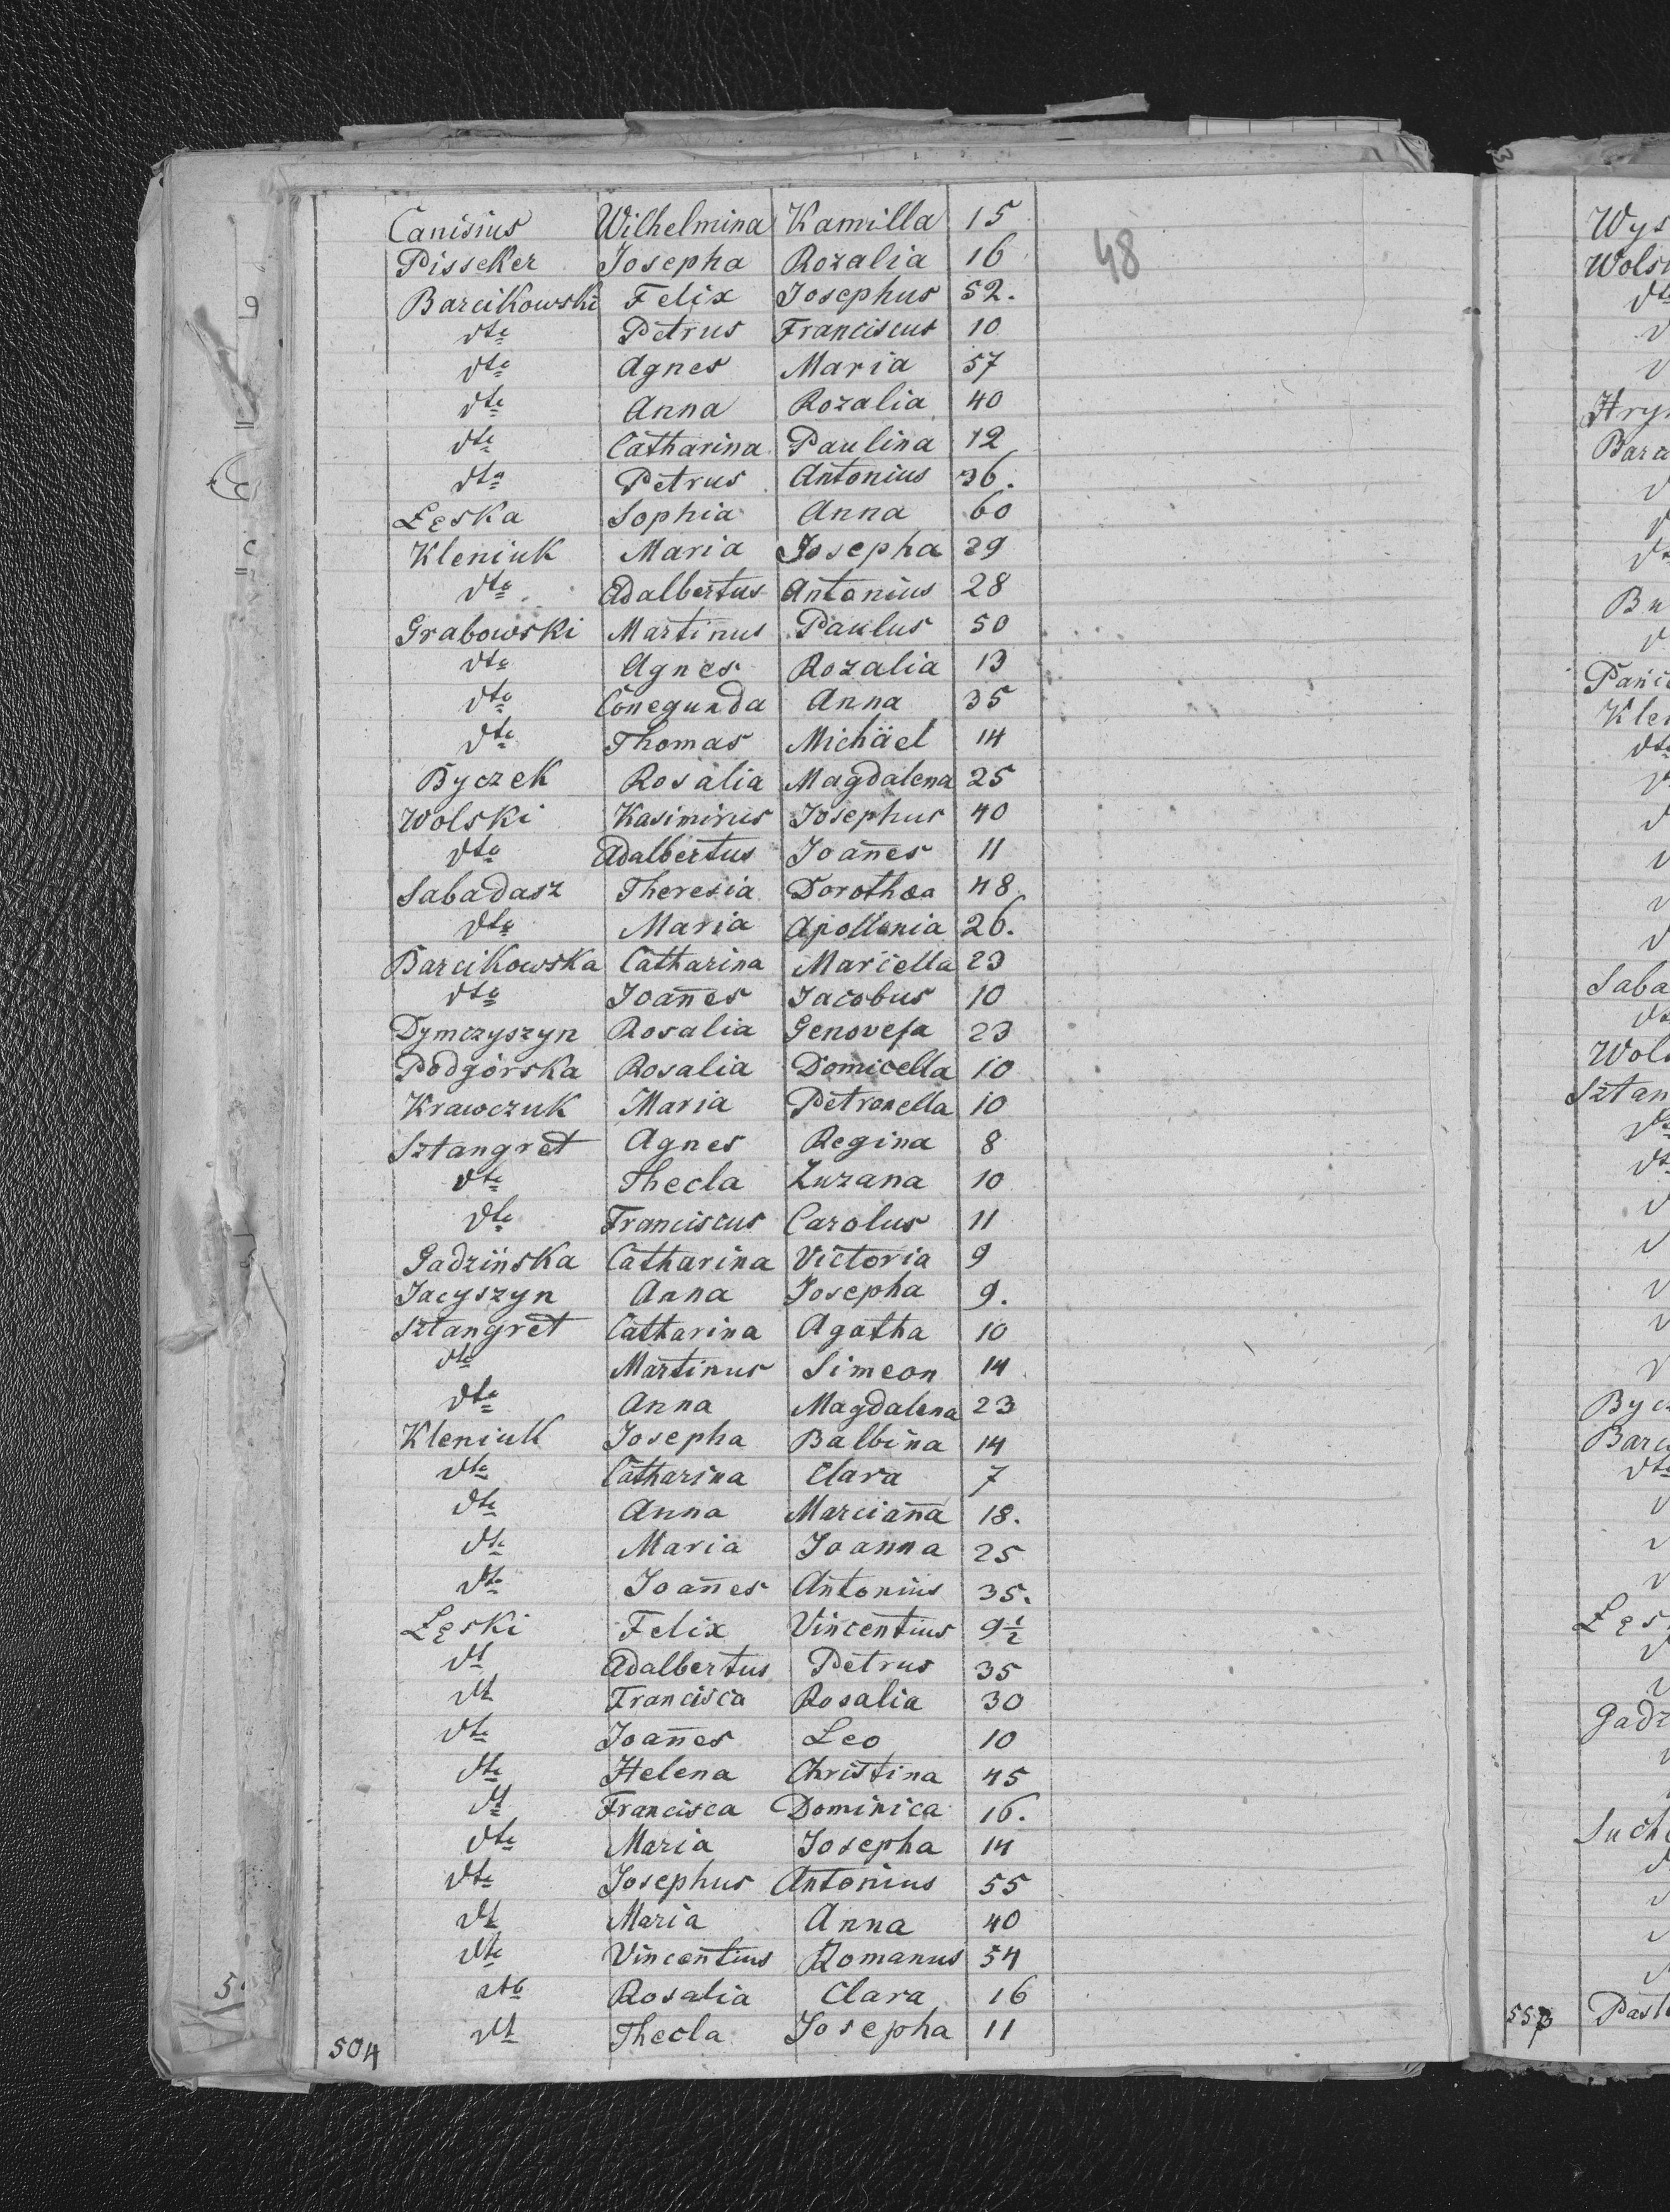 Canisius Wilhelmina Kamilla 15
48
Pisseker Josepha Rozalia 16
Barcikowski Felix Josephus 52.
dto Petrus Franciscus 10
dto Agnes Maria 57
dto Anna Rozalia 40
dto Catharina Paulina 12
dto Petrus Antonius 36.
Łęska Sophia Anna 60
Kleniuk Maria Josepha 29
dto Adalbertus Antonius 28
Grabowski Martinus Paulus 50
dto Agnes Rozalia 13
dto Conegunda Anna 35
dto Thomas Michäel 14
Byczek Rosalia Magdalena 25
Wolski Kasimirus Josephus 40
dto Adalbertus Joañes 11
Sabadasz Theresia Dorothea 48
dto Maria Apollonia 26.
Barcikowska Catharina Marcella 23
dto Joañes Jacobus 10
Dymczyszyn Rosalia Genovefa 23
Podgórska Rosalia Domicella 10
Krawczuk Maria Petronella 10
Sztangret Agnes Regina 8
dto Thecla Zuzana 10
dto Franciscus Carolus 11
Gadzińska Catharina Victoria 9
Jacyszyn Anna Josepha 9.
Sztangret Catharina Agatha 10
dto Martinus Simeon 14
dto Anna Magdalena 23
Kleniuk Josepha Balbina 14
dto Catharina Clara 7
dto Anna Marciañа 18.
dto Maria Joanna 25
dto Joañes Antonius 35.
Łęski Felix Vincentius 9½
dt Adalbertus Petrus 35
dt Francisca Rosalia 30
dto Joañes Leo 10
dto Helena Christina 45
dt Francisca Dominica 16.
dto Maria Josepha 14
dto Josephus Antonius 55
dt Maria Anna 40
dto Vincentius Romanus 54
dto Rosalia Clara 16
504 dt Thecla Josepha 11